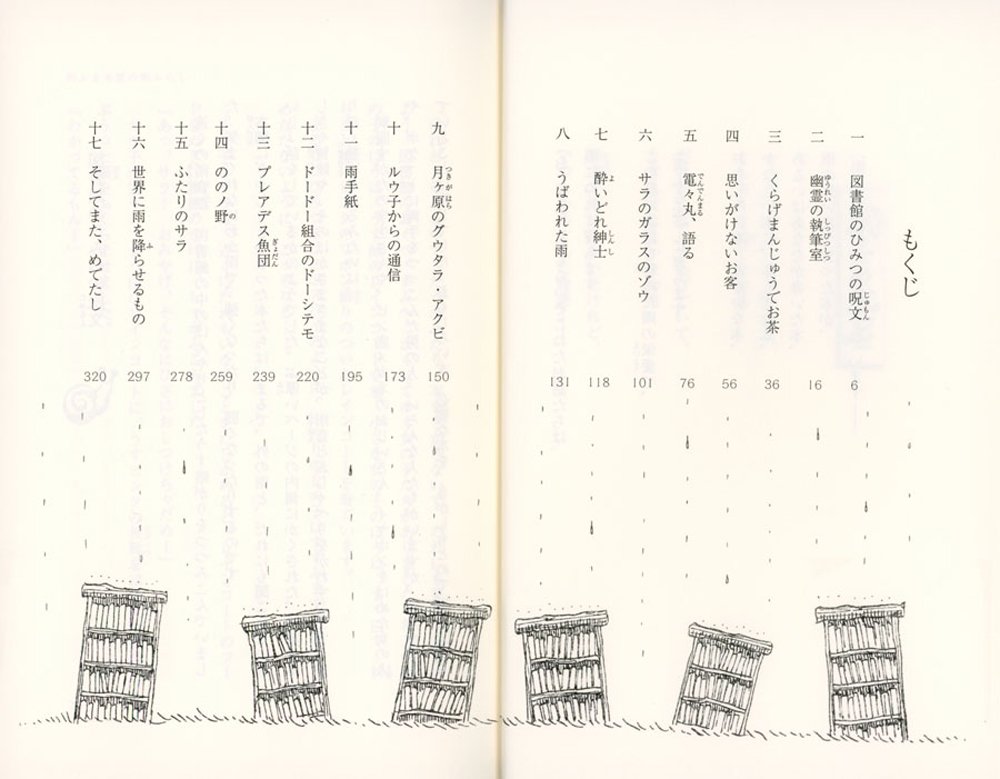 もくじ
一 図書館のひみつの呪文 6
二 幽霊の執筆室 16
三 くらげまんじゅうでお茶 36
四 思いがけないお客 56
五 電々丸、語る 76
六 サラのガラスのゾウ 101
七 酔いどれ紳士 118
八 うばわれた雨 131
九 月ヶ原のグウタラ・アクビ 150
十 ルウ子からの通信 173
十一 雨手紙 195
十二 ドードー組合のドーシテモ 220
十三 プレアデス魚団 239
十四 ののノ野 259
十五 ふたりのサラ 278
十六 世界に雨を降らせるもの 297
十七 そしてまた、めでたし 320